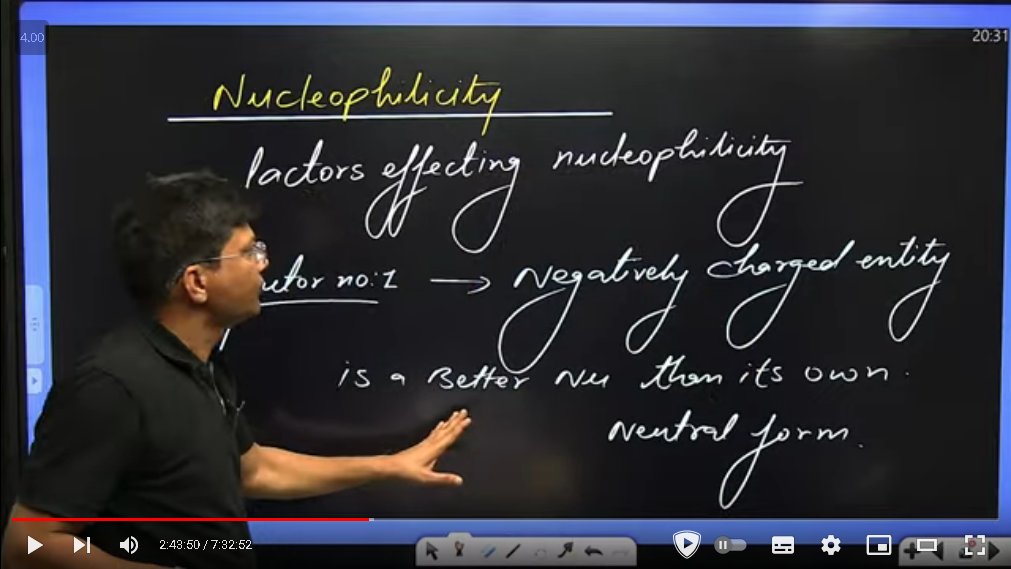 4.00
20:31
Nucleophilicity
factors effecting nucleophilicity
no:1 → Negatively charged entity
is a Better Nu than its own.
Neutral form.
2:43:50 / 7:32:52